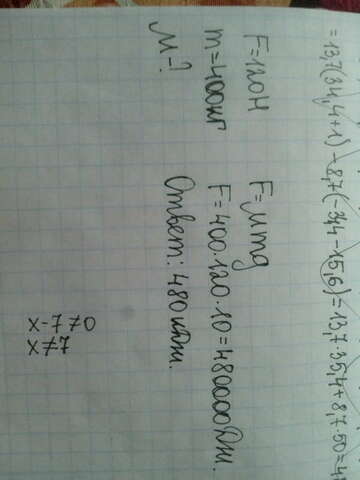 = 13,7(34,4+1) - 8,7(-34,4 - 15,6) = 13,7 · 35,4 + 8,7 · 50 =
F=120Н
m=400кг
μ-?
F=μmg
F=400·120·10=480000Дж.
Ответ: 480кДж.
x-7≠0
x≠7